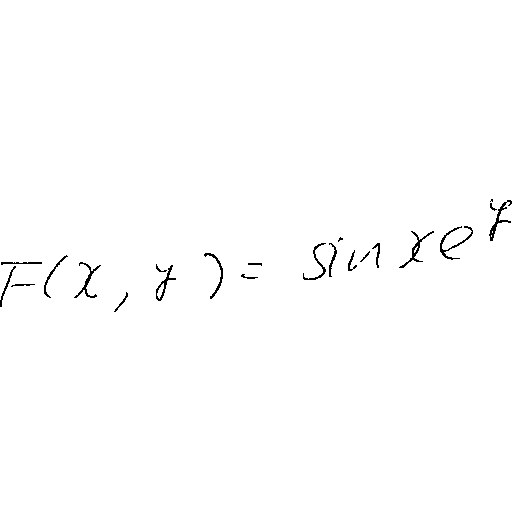 F(x, y) = sin x e^y